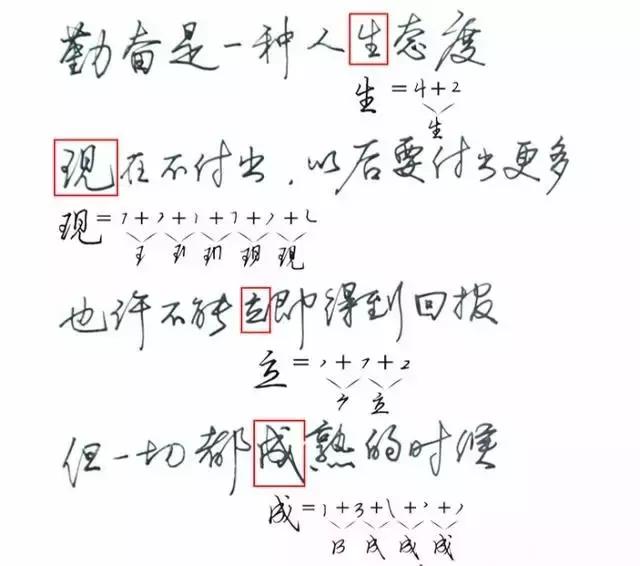 勤奋是一种人生态度
生=4+2
生
现在不付出,以后要付出更多
现=
王 现 现
也许不能立即得到回报
立=丶+7+2
立
但一切都成熟的时候
成=1+3+
成 成